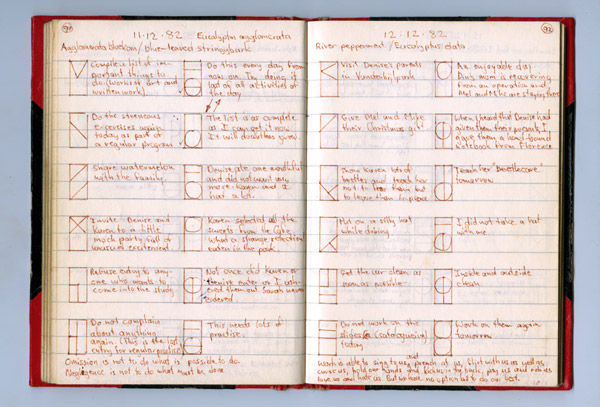 91
11·12·82 Eucalyptus agglomerata
Agglomerata blackbutt/blue-leaved stringybark
Compile a list of im-
portant things to
do (work of art and
written work).
Do this every day from
now on. Try doing it
last of all activities of
the day.
Do the strenuous
exercises again
today as part of
a regular program
The list is as complete
as I can get it now
It will doubtless grow.
Share watermelon
with the family.
Denise ate one mouthful
and did not want any
more. Karen and I
had a lot.
Invite Denise and
Karen to a little
lunch party full of
unusual excitement
Karen selected all the
sweets from the Coke
what a strange
eaten in the park
Refuse entry to any-
one who wants to
come into the study
Not once did Karen or
Denise enter so I ush-
ered them out. Sarah never
entered.
Do not complain
about anything
again. (This is the last
entry for regular practise)
This needs lots of
practise.
Omission is not to do what is possible to do.
Negligence is not to do what must be done
92
12·12·82
River peppermint / Eucalyptus elata
Visit Denise's parents
in Vanderbijlpark
An enjoyable day
Den's mom is recovering
from an operation and
Mel and Mike are staying there
Give Mel and Mike
their Christmas gift
When I heard that Denise had
given them their present I
gave them a hand-bound
notebook from Florence
Show Karen lots of
beetles and teach her
not to fear them but
to leave them in peace
Teach her "Beetlecore"
tomorrow
Put on a silly hat
while driving
I did not take a hat
with me.
Get the car clean as
soon as possible
Inside and outside
clean
Do not work on the
slides (catalogueing)
today
Work on them again
tomorrow
and
Words able to sing to us, preach at us, flirt with us as well as
curse us, hold our hands and kick us in the back, pity us and
love us and hate us. But we have no option but to do our best.